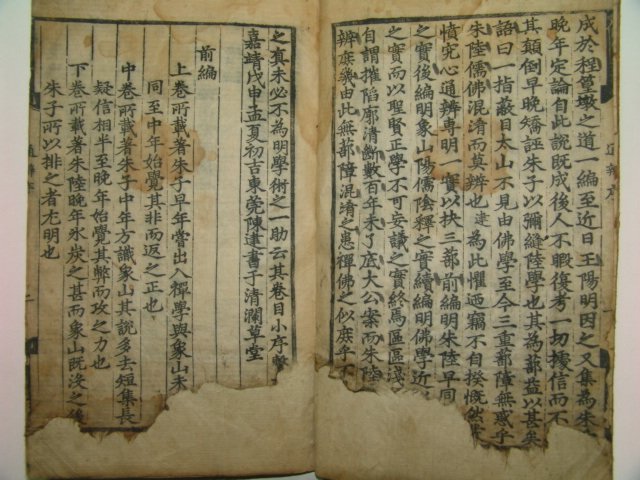 成於程篁墩之道一編至近日王陽明因之又集為朱
晚年定論自此說既成後人不暇復考一切據信而不
其顛倒早晚矯誣朱子以彌縫陸學也其為蔀益以甚矣
語曰一指蔽目太山不見由佛學至今三重蔀障無惑乎
朱陸儒佛混淆而莫辨也建為此懼迺竊不自揆慨然
憤究心通辨專明一實以抉三部前編明朱陸早同
之實後編明象山陽儒陰釋之實續編明佛學近
之實而以聖賢正學不可妄議之實終焉區區淺
自謂摧陷廓清斷數百年未了底大公案而朱陸
辨庶幾由此無蔀障混淆之患禪佛之似庶乎不
之真未必不為明學術之一助云其卷目小序繫
嘉靖戊申孟夏初吉東莞陳建書于清瀾草堂
前編
上卷所載著朱子早年嘗出入禪學與象山未
同至中年始覺其非而返之正也
中卷所載著朱子中年方識象山其說多去短集長
疑信相半至晚年始覺其弊而攻之力也
下卷所載著朱陸晚年氷炭之甚而象山既沒之後
朱子所以排之者尤明也